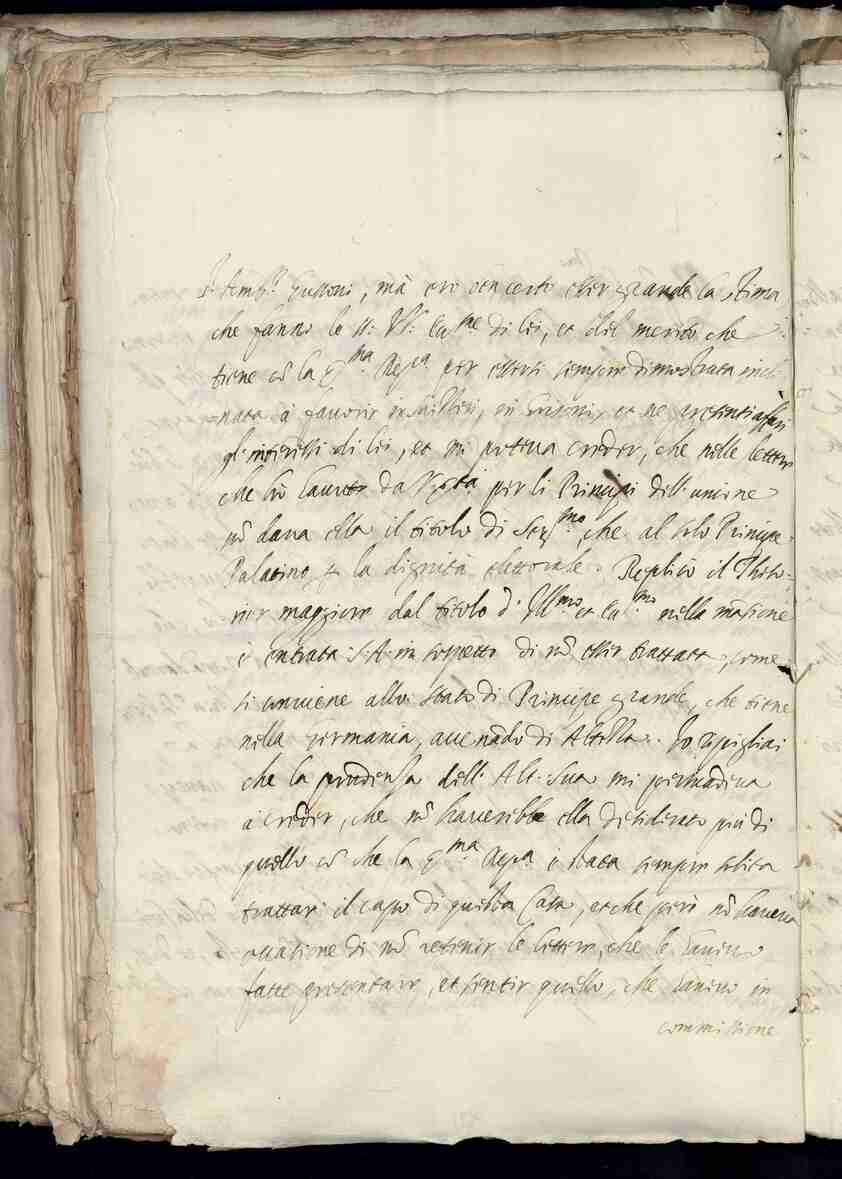 che fanno le SS: VV: Ecc.me di lei, et del merito che
tiene cō la S.ma Rep.ca per essersi sempre dimostrata incli
=nata à favorir in Grisoni, et ne
gl'interessi di lei, et mi poteva creder, che nelle lettere
che hò havute da V. S.tà per li Principi dell'unione
nō dava ella il titolo di Ser.mo, che al solo Principe
Palatino p la dignità elettorale. Replicò il Theso=
rier maggiore dal titolo d'Ill.mo et Ecc.mo nella
è entrata S: A: in sospetto di nō esser trattata, come
si conviene allo stato di Principe grande, che tiene
nella Germania, avenādo di Altezza. Io ripigliai
che la prudenza dell'Alt: Sua mi persuadeva
à creder, che nō haverebbe ella desiderato più di
quello cō che la S.ma Rep.ca è stata sempre solita
trattar il capo di questa Casa, et che però nō haveva
occasione di nō ricever le lettere, che le havevo
fatte presentare, et sentir quello, che havevo in
commissione